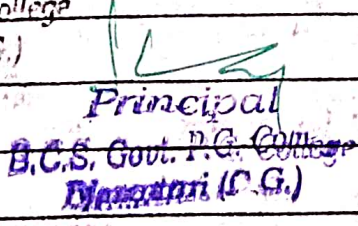 ollege
.)
Principal
B.C.S. Govt. P.G. College
(C.G.)